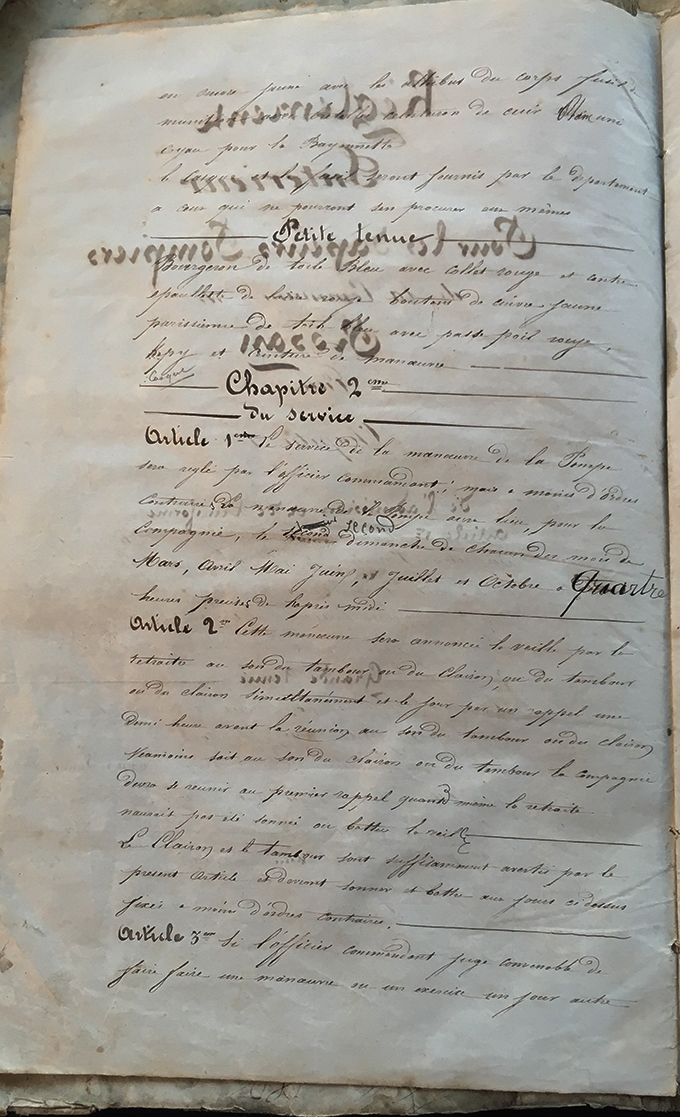 en cuivre jaune avec les attributs du corps fusil de
munition ceinturon de cuir
tuyau pour la Bayonnette
le casque et le fusil seront fournis par le département
a ceux qui ne pourront sen procurer eux mêmes
Petite tenue
Bourgeron de toile Bleu avec collet rouge et contre
epaullette de boutons de cuivre jaune
parissienne de toile bleu avec passe poil rouge,
kepy et ceinture de manœuvre
Casque
Chapitre 2 eme
du service
Article 1er Le service de la manœuvre de la Pompe
sera reglé par l'officier commandant, mais a moins d'ordres
contraires La manœuvre de Pompe aura lieu, pour la
second
Compagnie, le second dimanche de chacun des mois de
Mars, Avril Mai Juin, Juillet et Octobre a Quartre
heures precises de lapres midi
Article 2 Cette manœuvre sera annoncée la veille par la
retraite au son du tambour ou du clairon, ou du tambour
ou du clairon simultanément et le jour par un rappel une
Demi heure avant la réunion au son du tambour ou du clairon
Neamoins soit au son du clairon ou du tambour la compagnie
devra se reunir au premier rappel quand même la retraite
naurait pas été sonnée ou battue la veille
Le Clairon et le tambour sont suffisamment avertis par le
present Article et devront sonner et battre aux jours ci dessus
fixés a moins d'ordres contraires.
Article 3 Si l'officier commandant juge convenable de
faire faire une manœuvre ou un exercice un jour autre